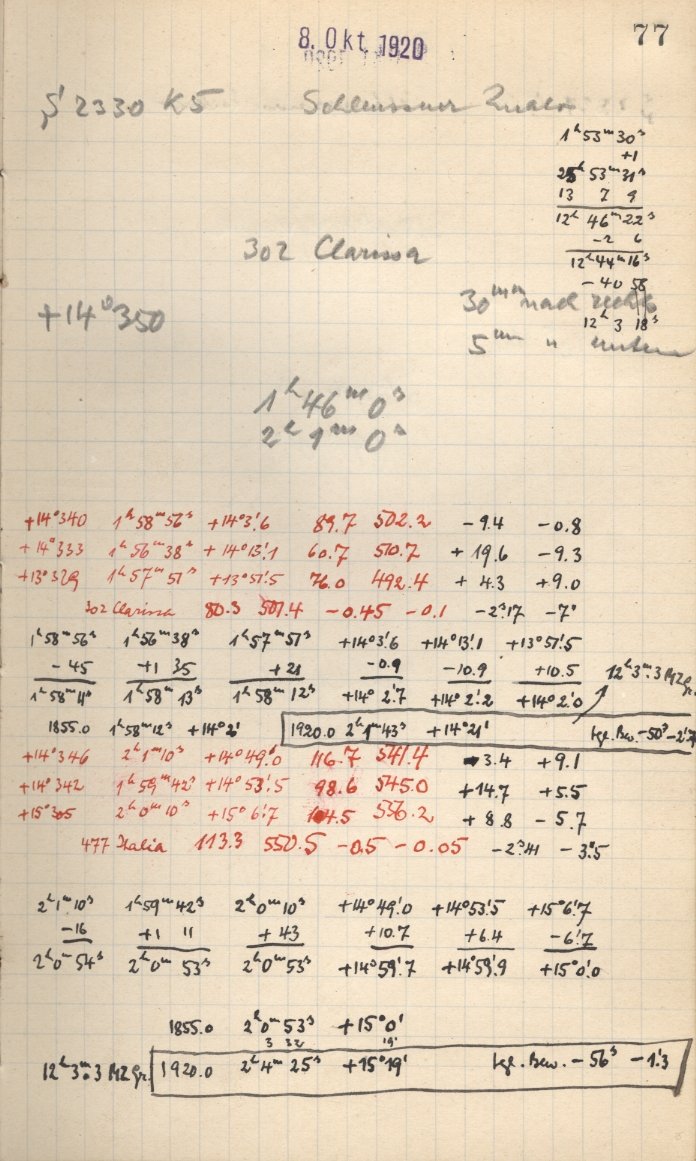 77
8. Okt. 1920
2330 K5 Schleussner
1ʰ 53ᵐ 30ˢ
+1
25ʰ 53ᵐ 31ˢ
13 7 9
12ʰ 46ᵐ 22ˢ
-2 6
12ʰ 44ᵐ 16ˢ
-40 58
12ʰ 3 18ˢ
302 Clarissa
+14° 350
30ᵐᵐ nach rechts
5ᵐᵐ " unten
1ʰ 46ᵐ 0ˢ
2ʰ 1ᵐ 0ˢ
+14°340 1ʰ 58ᵐ 56ˢ +14°3'.6 89.7 502.2 -9.4 -0.8
+14°333 1ʰ 56ᵐ 38ˢ +14°13'.1 60.7 510.7 +19.6 -9.3
+13°329 1ʰ 57ᵐ 51ˢ +13°51'.5 76.0 492.4 +4.3 +9.0
302 Clarissa 80.3 501.4 -0.45 -0.1 -2ˢ.17 -7"
1ʰ 58ᵐ 56ˢ 1ʰ 56ᵐ 38ˢ 1ʰ 57ᵐ 51ˢ +14°3'.6 +14°13'.1 +13°51'.5
-45 +1 35 +21 -0.9 -10.9 +10.5
1ʰ 58ᵐ 11ˢ 1ʰ 58ᵐ 13ˢ 1ʰ 58ᵐ 12ˢ +14° 2'.7 +14° 2'.2 +14° 2'.0 12ʰ 3ᵐ.3 MZGr.
1855.0 1ʰ 58ᵐ 12ˢ +14°2' 1920.0 2ʰ 1ᵐ 43ˢ +14°21' tgl. Bew. -50ˢ -2'.7
+14°346 2ʰ 1ᵐ 10ˢ +14°49'.0 116.7 541.4 -3.4 +9.1
+14°342 1ʰ 59ᵐ 42ˢ +14°53'.5 98.6 545.0 +14.7 +5.5
+15°305 2ʰ 0ᵐ 10ˢ +15°6'.7 104.5 556.2 +8.8 -5.7
477 Italia 113.3 550.5 -0.5 -0.05 -2ˢ.41 -3".5
2ʰ 1ᵐ 10ˢ 1ʰ 59ᵐ 42ˢ 2ʰ 0ᵐ 10ˢ +14°49'.0 +14°53'.5 +15°6'.7
-16 +1 11 +43 +10.7 +6.4 -6'.7
2ʰ 0ᵐ 54ˢ 2ʰ 0ᵐ 53ˢ 2ʰ 0ᵐ 53ˢ +14°59'.7 +14°59'.9 +15°0'.0
1855.0 2ʰ 0ᵐ 53ˢ +15°0'
3 32 19'
12ʰ 3ᵐ.3 MZGr. 1920.0 2ʰ 4ᵐ 25ˢ +15°19' tgl. Bew. -56ˢ -1'.3